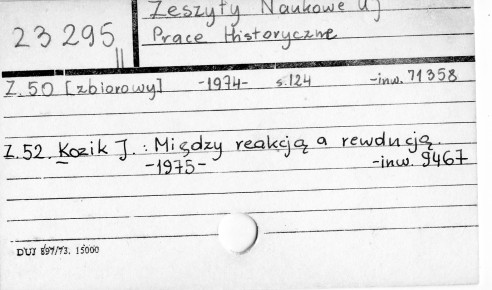 Zeszyty Naukowe UJ
23 295 II
Prace Historyczne
Z. 50 [zbiorowy] -1974- s.124 -inw. 71358
Z. 52. Kozik J. : Między reakcją a rewolucją.
-1975- -inw. 9467
DUJ 897/73. 15000